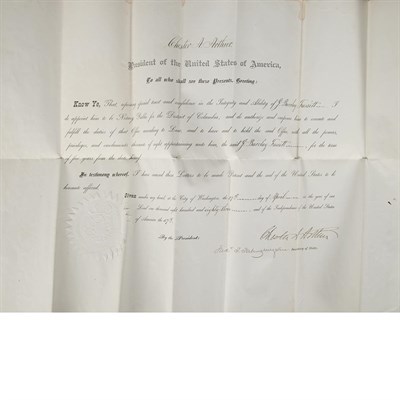 Chester A. Arthur
President of the United States of America,
To all who shall see these Presents, Greeting:
Know Ye, That reposing special trust and confidence in the Integrity and Ability of J. I
do appoint him to be Notary Public for the District of Columbia, and do authorize and empower him to execute and
fulfill the duties of that Office according to Law: and to have and to hold the said Office, with all the powers,
privileges, and emoluments thereof of right appertaining unto him, the said J. for the term
of five years from the date hereof
In testimony whereof, I have caused these Letters to be made Patent and the Seal of the United States to be
hereunto affixed.
Given under my hand, at the City of Washington, the day of April in the year of our
Lord one thousand eight hundred and eighty three and of the Independence of the United States
of America the
By the President:
Chester A. Arthur
Secretary of State